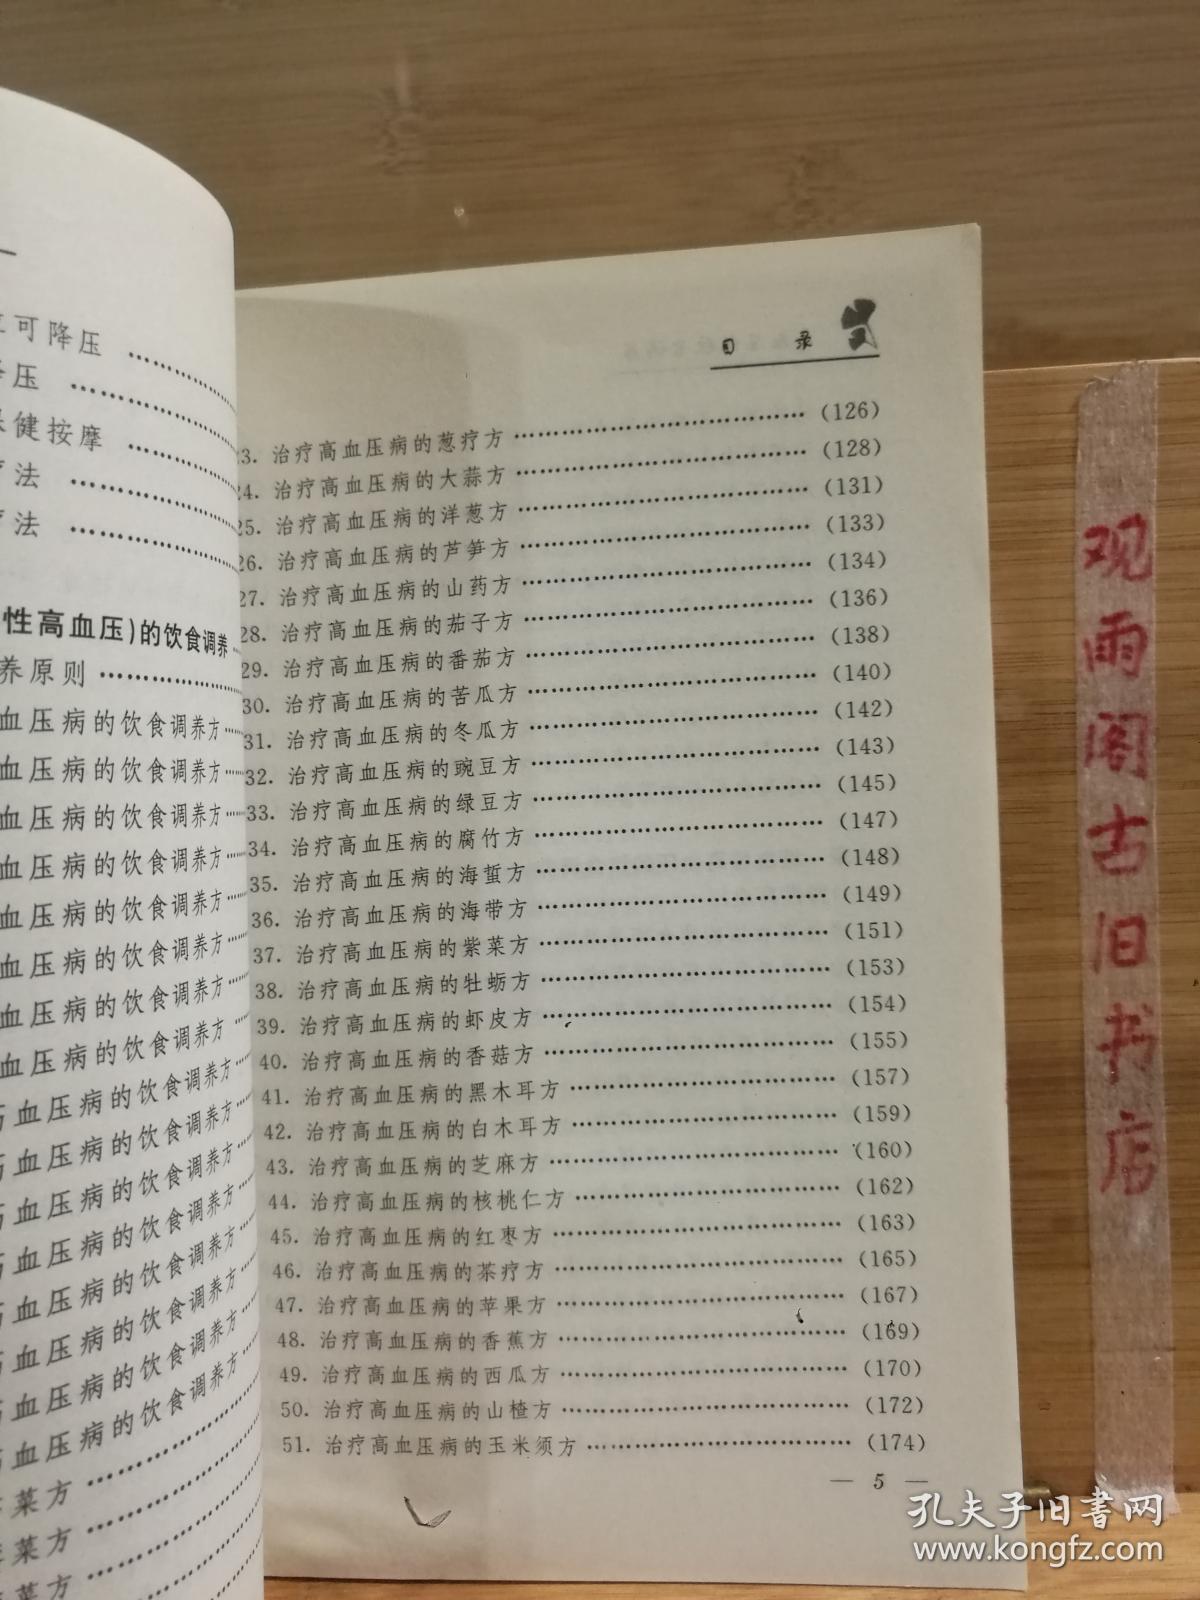 可降压 ……
压 ……
健按摩 ……
法 ……
法 ……
性高血压)的饮食调养
养原则 ……
血压病的饮食调养方 ……
血压病的饮食调养方 ……
血压病的饮食调养方 ……
血压病的饮食调养方 ……
血压病的饮食调养方 ……
血压病的饮食调养方 ……
血压病的饮食调养方 ……
血压病的饮食调养方 ……
血压病的饮食调养方 ……
血压病的饮食调养方 ……
血压病的饮食调养方 ……
血压病的饮食调养方 ……
血压病的饮食调养方 ……
血压病的饮食调养方 ……
血压病的饮食调养方 ……
血压病的饮食调养方 ……
菜方 ……
菜方 ……
菜方 ……
目 录
23. 治疗高血压病的葱疗方 …… (126)
24. 治疗高血压病的大蒜方 …… (128)
25. 治疗高血压病的洋葱方 …… (131)
26. 治疗高血压病的芦笋方 …… (133)
27. 治疗高血压病的山药方 …… (134)
28. 治疗高血压病的茄子方 …… (136)
29. 治疗高血压病的番茄方 …… (138)
30. 治疗高血压病的苦瓜方 …… (140)
31. 治疗高血压病的冬瓜方 …… (142)
32. 治疗高血压病的豌豆方 …… (143)
33. 治疗高血压病的绿豆方 …… (145)
34. 治疗高血压病的腐竹方 …… (147)
35. 治疗高血压病的海蜇方 …… (148)
36. 治疗高血压病的海带方 …… (149)
37. 治疗高血压病的紫菜方 …… (151)
38. 治疗高血压病的牡蛎方 …… (153)
39. 治疗高血压病的虾皮方 …… (154)
40. 治疗高血压病的香菇方 …… (155)
41. 治疗高血压病的黑木耳方 …… (157)
42. 治疗高血压病的白木耳方 …… (159)
43. 治疗高血压病的芝麻方 …… (160)
44. 治疗高血压病的核桃仁方 …… (162)
45. 治疗高血压病的红枣方 …… (163)
46. 治疗高血压病的茶疗方 …… (165)
47. 治疗高血压病的苹果方 …… (167)
48. 治疗高血压病的香蕉方 …… (169)
49. 治疗高血压病的西瓜方 …… (170)
50. 治疗高血压病的山楂方 …… (172)
51. 治疗高血压病的玉米须方 …… (174)
— 5 —
观雨阁古旧书店
孔夫子旧书网
www.kongfz.com